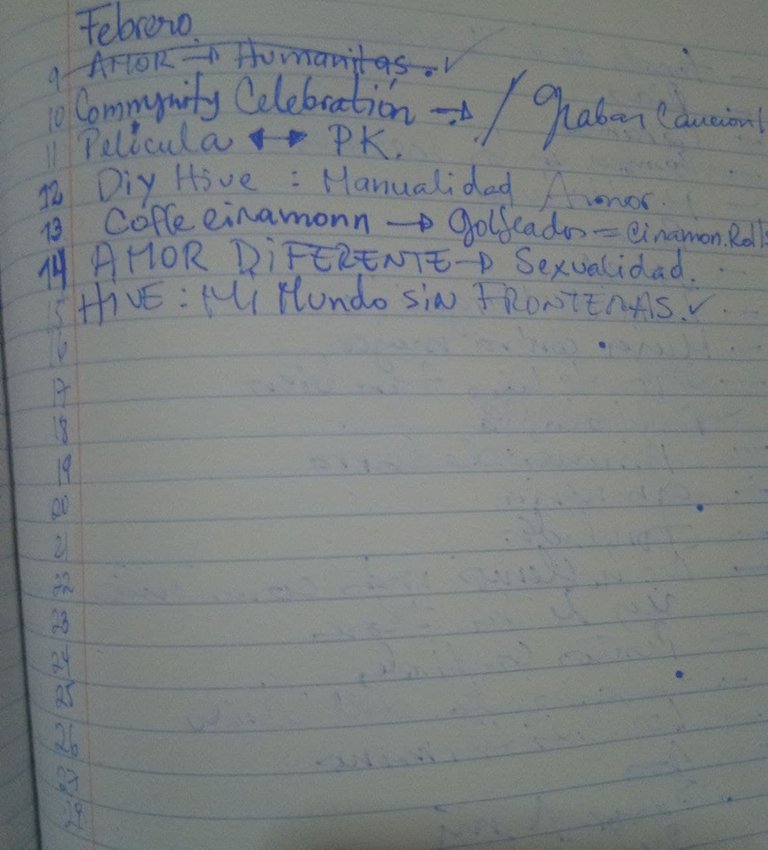 Febrero.
9 AMOR → Humanitas. ✓
10 Community Celebratión → / Grabar Cancion
11 Pelicula ↔ PK.
12 Diy Hive : Manualidad
13 Coffe cinamonn → Golfeados = Cinamon.Rolls
14 AMOR DiFERENTE → Sexualidad.
15 HIVE : Mi Mundo sin FRONTERAS. ✓
16
17
18
19
20
21
22
23
24
25
26